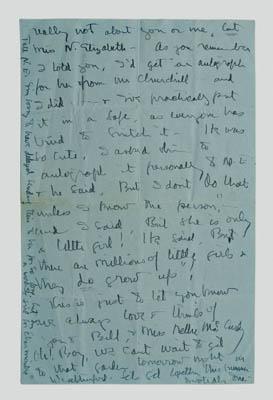 really not about you or me, but
Miss N. Elizabeth - As you remember
I told you, I'd get an autograph
for her from Mr Churchill - and
I did - & I've practically put
it in a safe, as everyone has
tried to snitch it - He was
so cute, I asked him to
autograph it personally to N. E.
& he said, But I don't do that
unless I know the person, -
and I said, But she is only
a little girl! He said, But
there are millions of little girls &
they do grow up!
This is just to let you know
I always love & think of
you & Bill & Miss Nellie
Oh! Boy, we can't wait to get
to that garden tomorrow night in